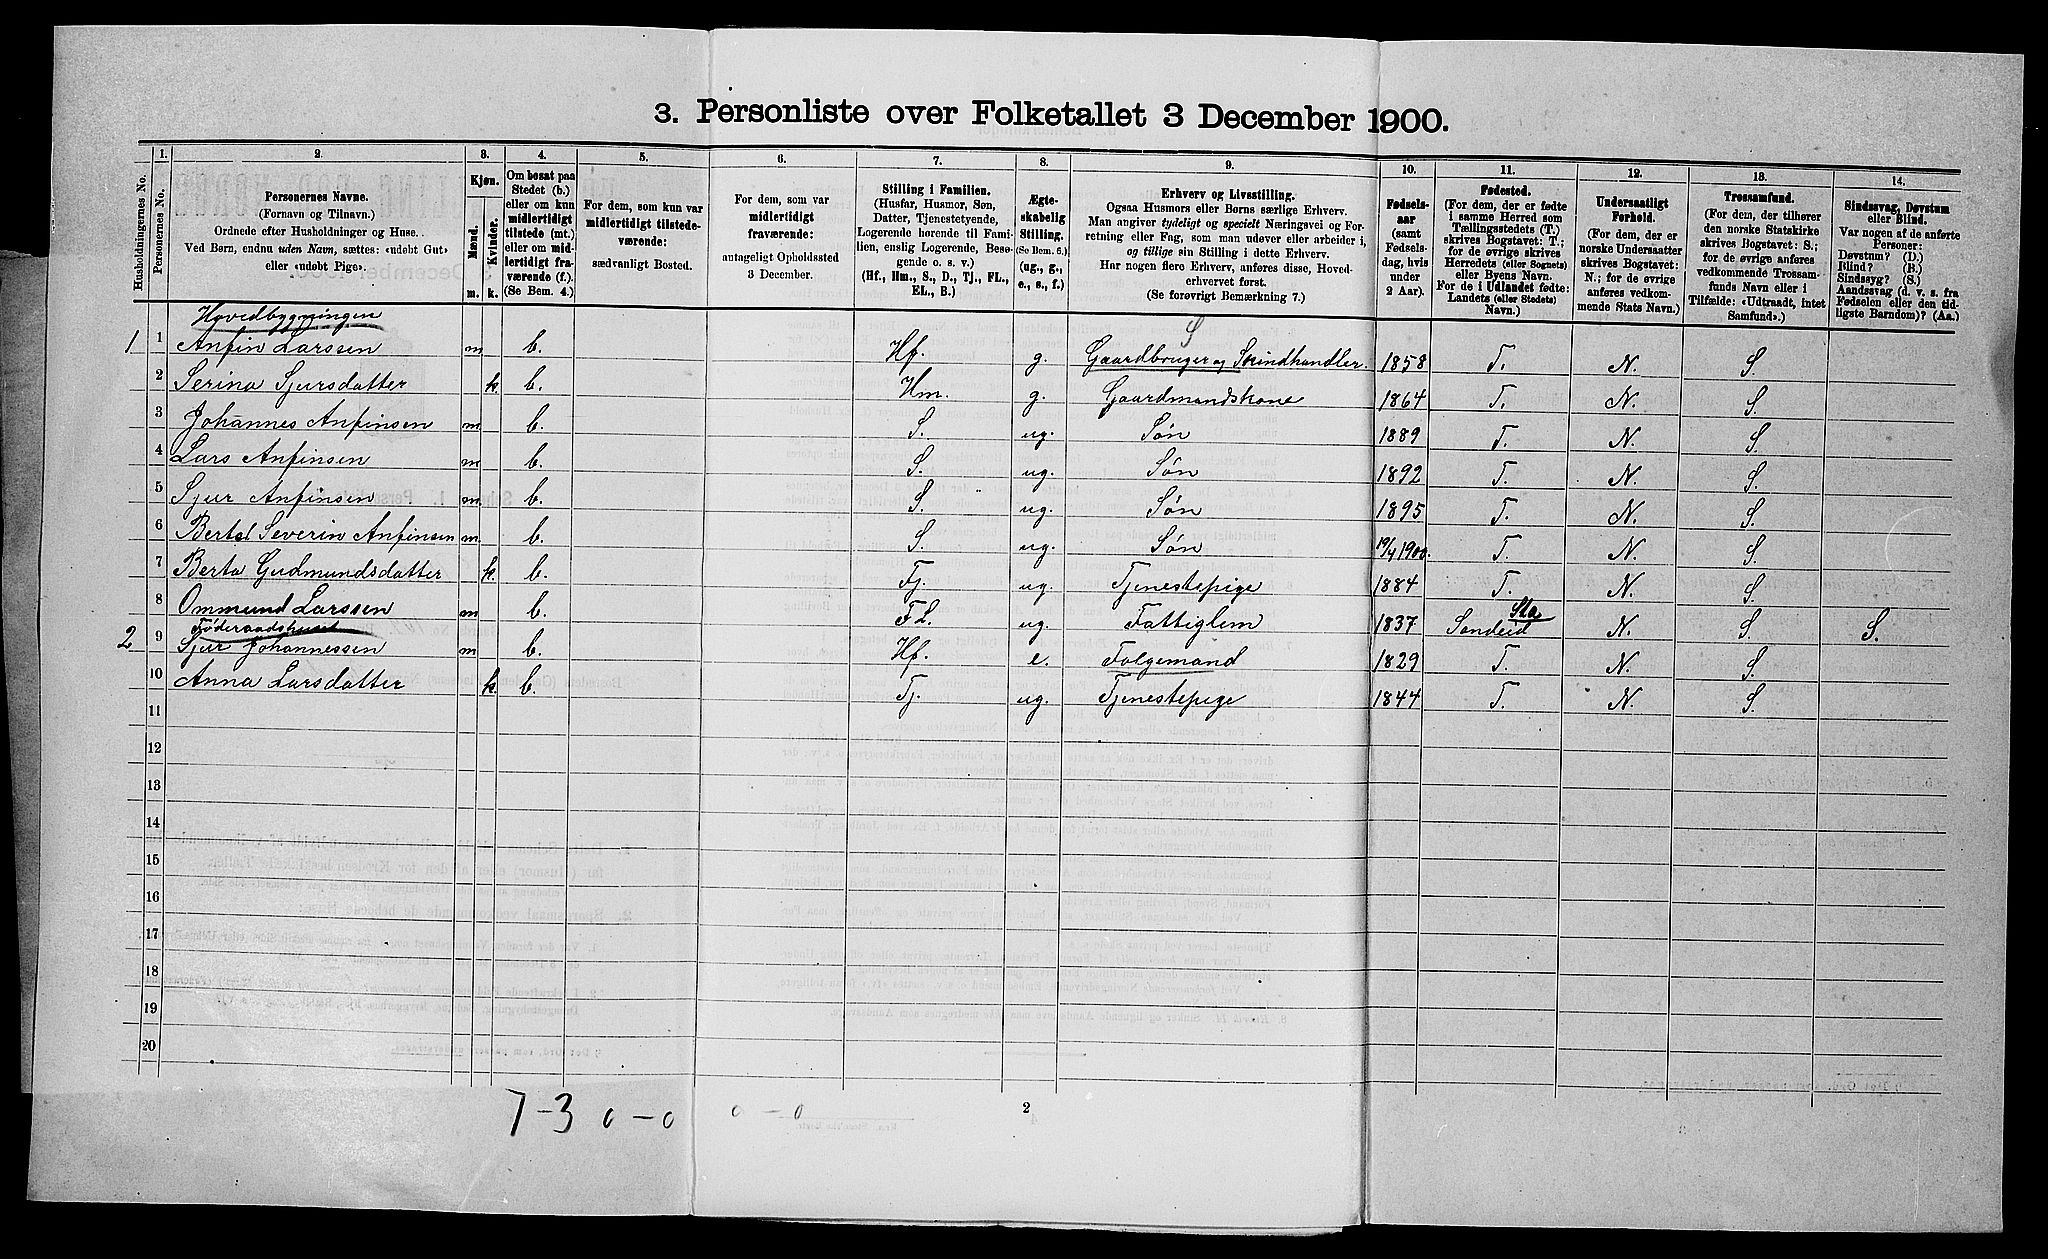 3. Personliste over Folketallet 3 December 1900.
Husholdningernes No.
1. Personernes No.
2. Personernes Navne.
(Fornavn og Tilnavn.)
Ordnede efter Husholdninger og Huse.
Ved Børn, endnu uden Navn, sættes: «udøbt Gut»
eller «udøbt Pige».
3. Kjøn.
Mænd. Kvinder.
m. k.
4. Om bosat paa
Stedet (b.)
eller om kun
midlertidigt
tilstede (mt.)
eller om mid-
lertidigt fra-
værende (f.).
(Se Bem. 4.)
5. For dem, som kun var
midlertidigt tilstede-
værende:
sædvanligt Bosted.
6. For dem, som var
midlertidigt
fraværende:
antageligt Opholdssted
3 December.
7. Stilling i Familien.
(Husfar, Husmor, Søn,
Datter, Tjenestetyende,
Logerende hørende til Fami-
lien, enslig Logerende, Besø-
gende o. s. v.)
(Hf., Hm., S., D., Tj., FL.,
EL., B.)
8. Ægte-
skabelig
Stilling.
(Se Bem. 6.)
(ug., g.,
e., s., f.)
9. Erhverv og Livsstilling.
Ogsaa Husmors eller Børns særlige Erhverv.
Man angiver tydeligt og specielt Næringsvei og For-
retning eller Fag, som man udøver eller arbeider i,
og tillige sin Stilling i dette Erhverv.
Har nogen flere Erhverv, anføres disse, Hoved-
erhvervet først.
(Se forøvrigt Bemærkning 7.)
10. Fødsels-
aar
(samt
Fødsels-
dag, hvis
under
2 Aar).
11. Fødested.
(For dem, der er fødte
i samme Herred som
Tællingsstedets (T.)
skrives Bogstavet: T.;
for de øvrige skrives
Herredets (eller Sognets)
eller Byens Navn.
For de i Udlandet fødte:
Landets (eller Stedets)
Navn.)
12. Undersaatligt
Forhold.
(For dem, der er
norske Undersaatter
skrives Bogstavet:
N.; for de øvrige
anføres vedkom-
mende Stats Navn.)
13. Trossamfund.
(For dem, der tilhører
den norske Statskirke
skrives Bogstavet: S.;
for de øvrige anføres
vedkommende Trossam-
funds Navn eller i
Tilfælde: «Udtraadt, intet
Samfund».)
14. Sindssvag, Døvstum
eller Blind.
Var nogen af de anførte
Personer:
Døvstum? (D.)
Blind? (B.)
Sindssyg? (S.)
Aandssvag (d. v. s. fra
Fødselen eller den tid-
ligste Barndom)? (Aa.)
Hovedbygningen
S
1 1 Anfin Larssen m b. Hf. g. Gaardbruger og Skindhandler. 1858 T. N. S.
2 Serina Sjursdatter k. b. Hm. g. Gaardmandskone 1864 T. N. S.
3 Johannes Anfinsen m b. S. ug. Søn 1889 T. N. S.
4 Lars Anfinsen m b. S. ug. Søn 1892 T. N. S.
5 Sjur Anfinsen m. b. S. ug. Søn 1895 T. N. S.
6 Bertel Severin Anfinsen m. b. S. ug. Søn 19/4 1900. T. N. S.
7 Berta Gudmundsdatter k. b. Tj. ug. Tjenestepige 1884 T. N. S.
8 Ommund Larssen m b. FL. ug. Fattiglem 1837 Sandeid Sta N. S. S.
Føderaadshuset
2 9 Sjur Johannessen m b. Hf. e. Folgemand 1829 T. N. S.
10 Anna Larsdatter k. b. Tj. ug. Tjenestepige 1844 T. N. S.
11
12
13
14
15
16
17
18
19
20
7-3 0-0 0-0
2